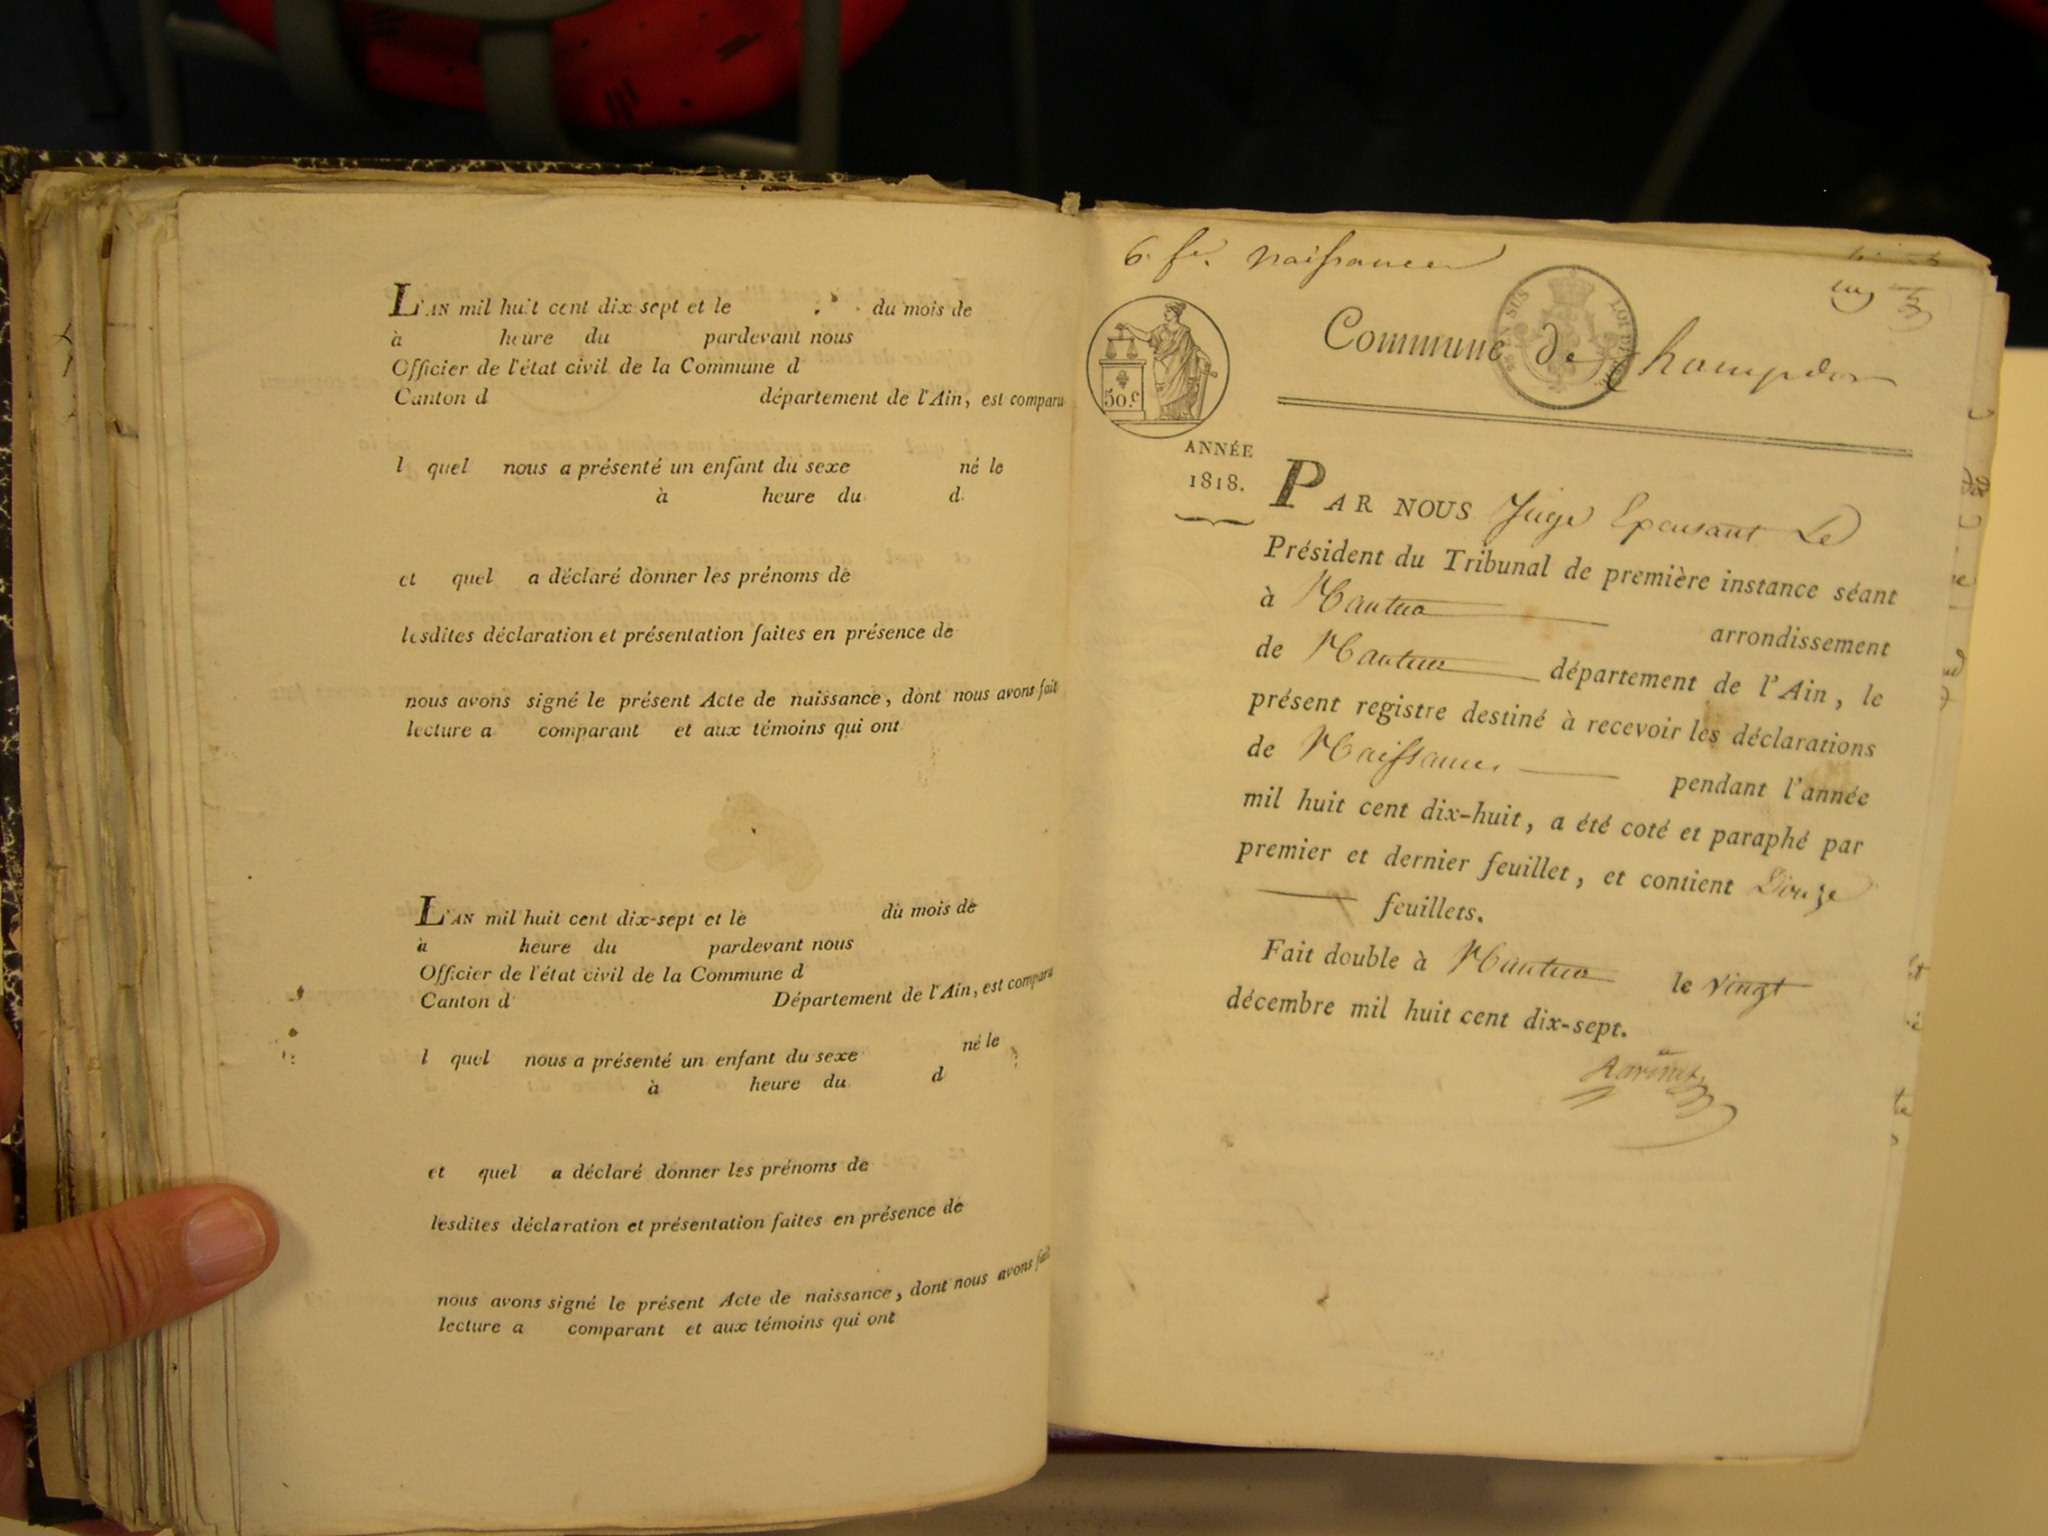 L'AN mil huit cent dix-sept et le du mois de
à heure du pardevant nous
Officier de l'état civil de la Commune d
Canton d département de l'Ain, est comparu
l quel nous a présenté un enfant du sexe né le
à heure du d
et quel a déclaré donner les prénoms de
lesdites déclaration et présentation faites en présence de
nous avons signé le présent Acte de naissance, dont nous avons fait
lecture a comparant et aux témoins qui ont
L'AN mil huit cent dix-sept et le du mois de
à heure du pardevant nous
Officier de l'état civil de la Commune d
Canton d Département de l'Ain, est comparu
l quel nous a présenté un enfant du sexe né le
à heure du d
et quel a déclaré donner les prénoms de
lesdites déclaration et présentation faites en présence de
nous avons signé le présent Acte de naissance, dont nous avons fait
lecture a comparant et aux témoins qui ont
6 fr. Naissances
50.c
Commune de Champdor
ANNÉE
1818.
PAR NOUS Juge Le
Président du Tribunal de première instance séant
à Nantua arrondissement
de Nantua département de l'Ain, le
présent registre destiné à recevoir les déclarations
de Naissances pendant l'année
mil huit cent dix-huit, a été coté et paraphé par
premier et dernier feuillet, et contient Douze
feuillets.
Fait double à Nantua le vingt
décembre mil huit cent dix-sept.